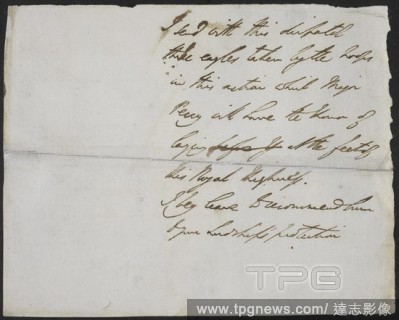 I send with this dispatch
three eagles taken by the troops
in this action which Major
Percy will have the honor of
laying before you at the feet of
his Royal Highness.
I beg leave to recommend him
to your Lordship's protection
TPG
www.tpgnews.com / 達志影像